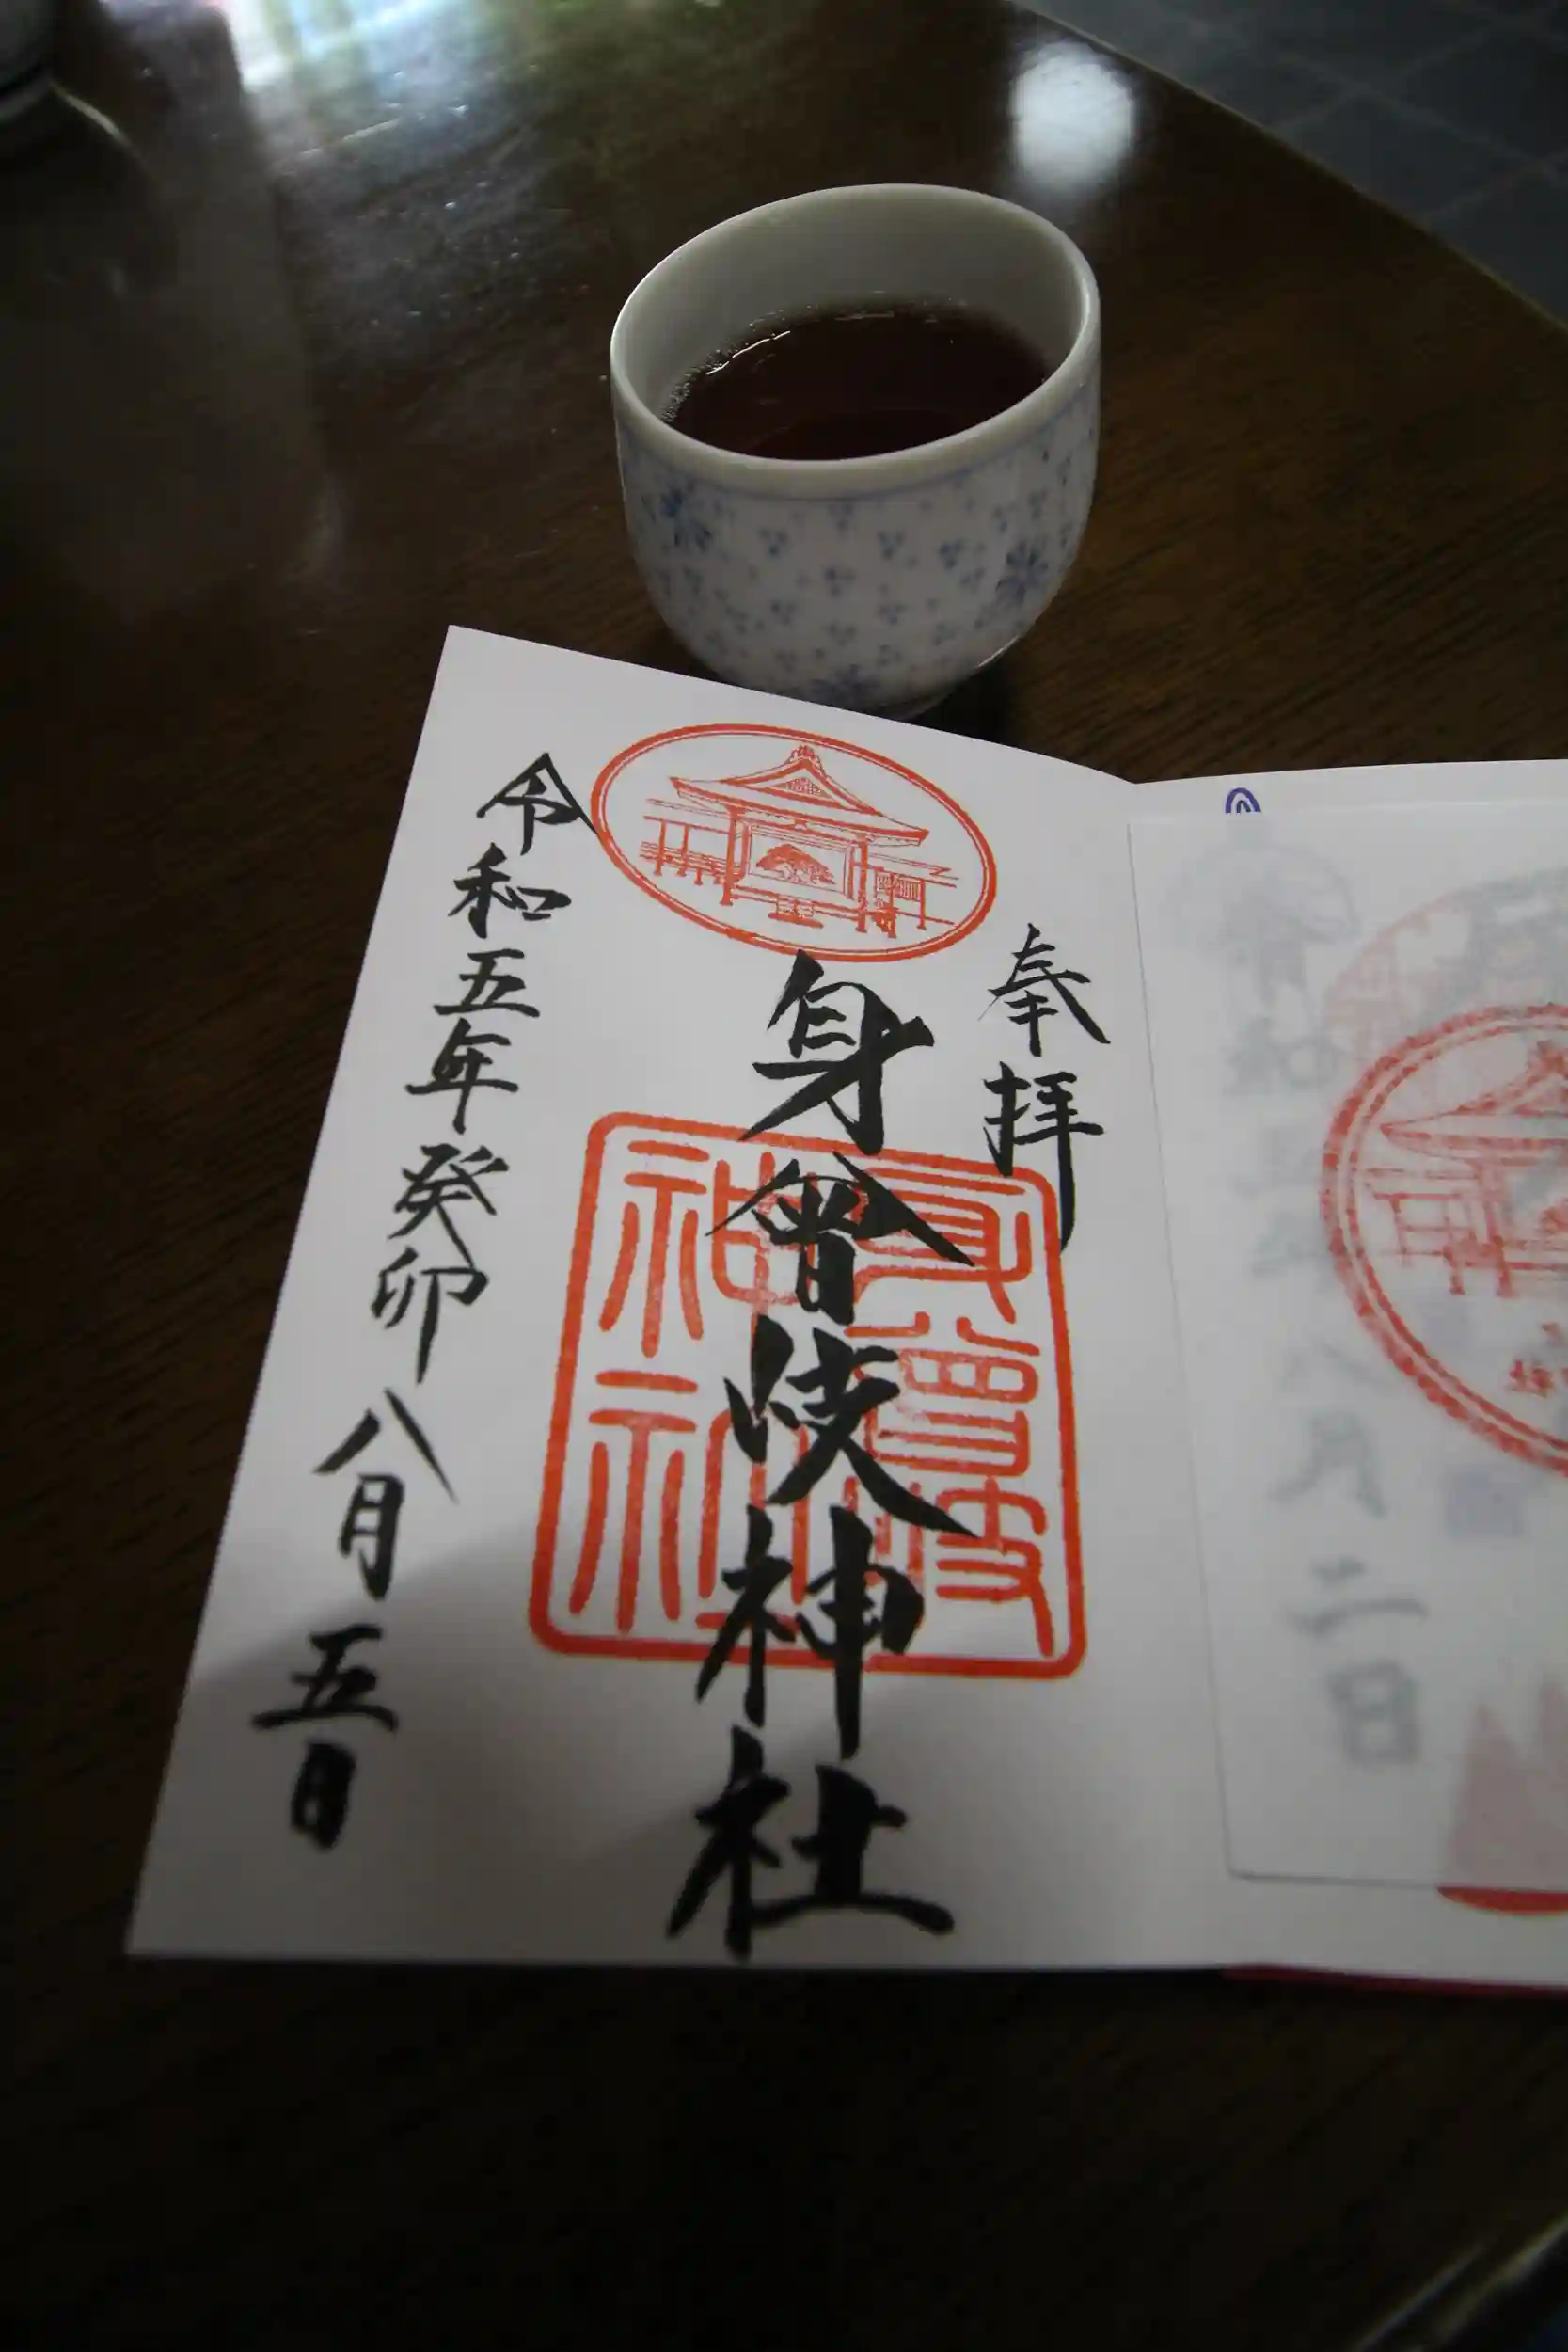 八月二日
奉拝
身曾岐神社
身曾岐
神社
令和五年癸卯八月五日